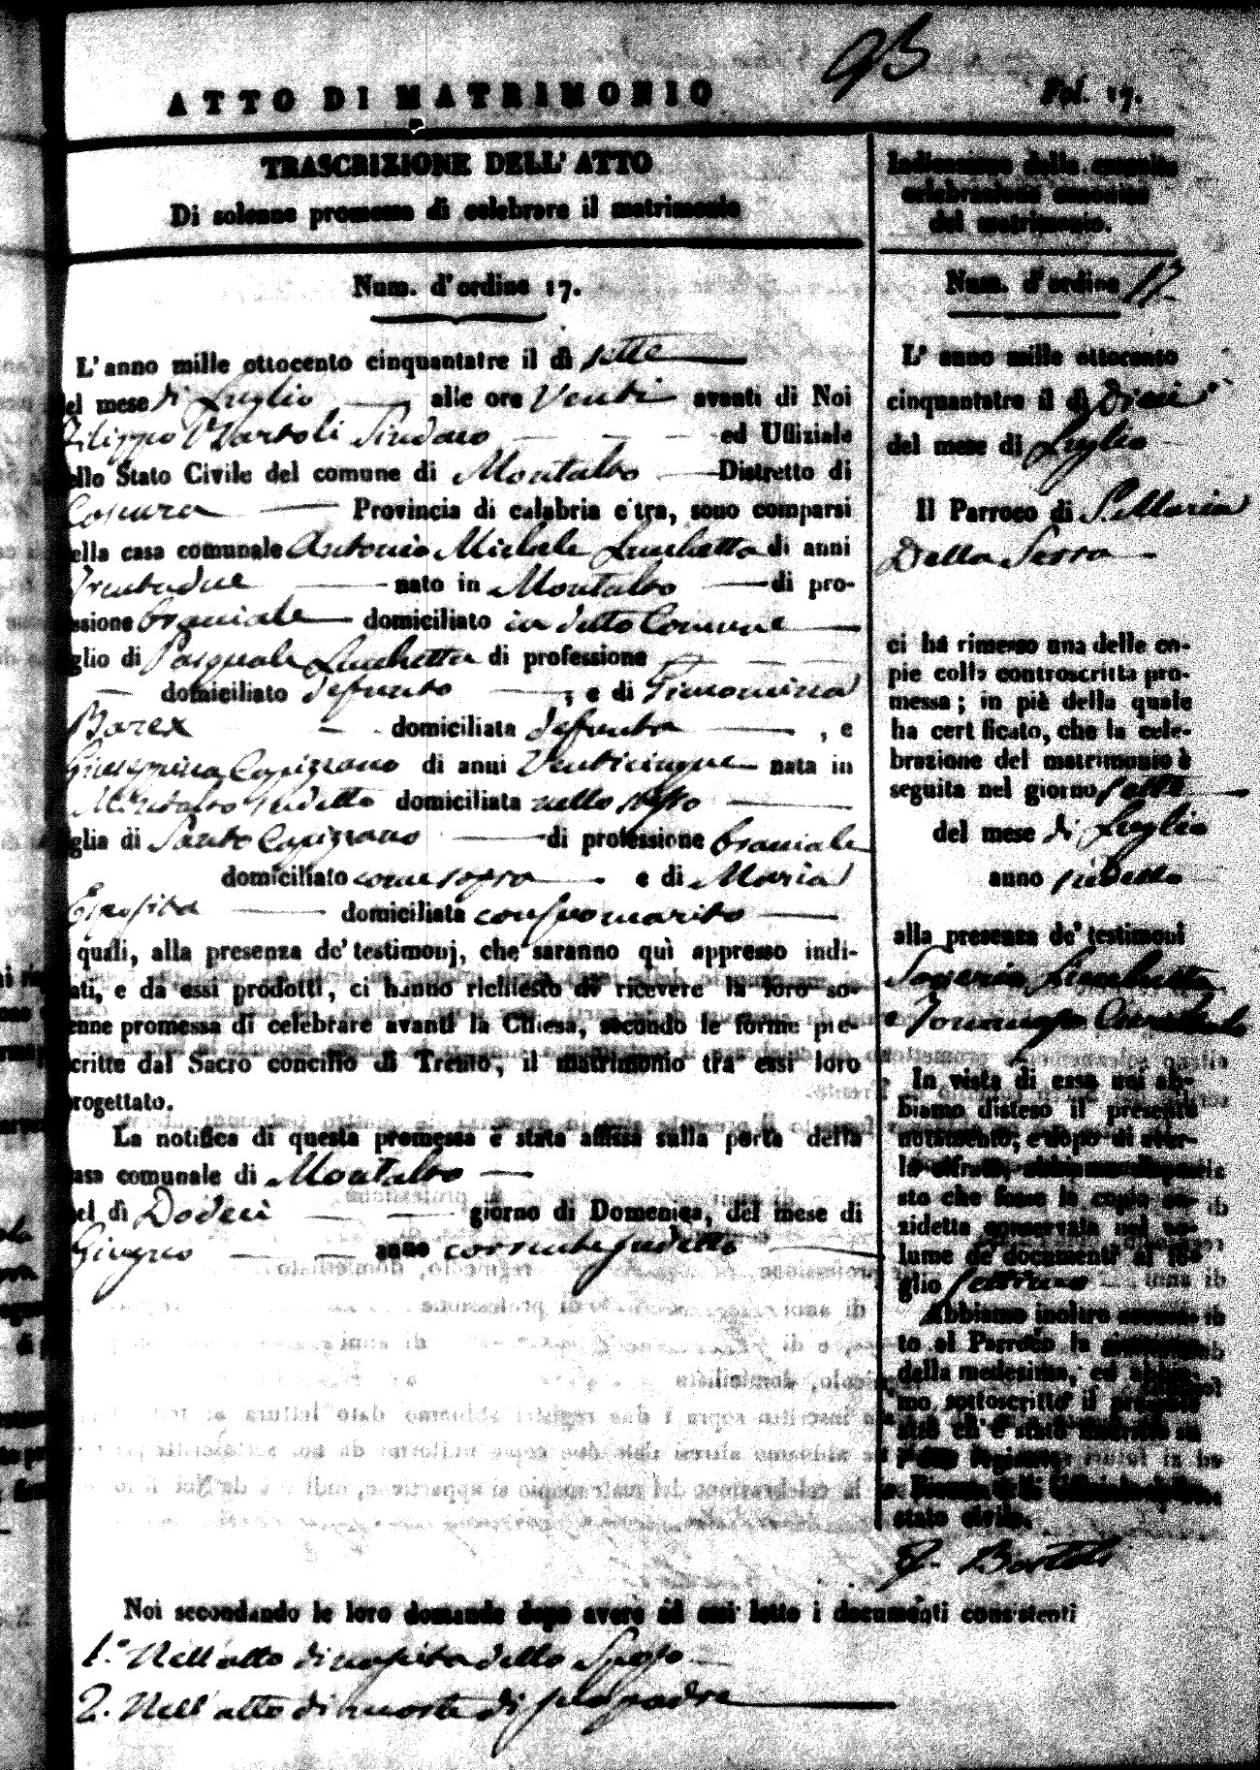 93
ATTO DI MATRIMONIO
Fol. 17.
TRASCRIZIONE DELL' ATTO
Di solenne promessa di celebrare il matrimonio
Num. d'ordine 17.
L'anno mille ottocento cinquantatre il dì sette
el mese di Luglio alle ore Venti avanti di Noi
Filippo Bartoli Sindaco ed Uffiziale
ello Stato Civile del comune di Montalto Distretto di
Cosenza Provincia di calabria citra, sono comparsi
ella casa comunale Antonio Michele Lucchetta di anni
Trentadue nato in Montalto di pro-
ssione braciale domiciliato in detto Comune
glio di Pasquale Lucchetta di professione
domiciliato defunto , e di
domiciliata defunta , e
Giuseppina Capizzano di anni Venticinque nata in
Montalto sudetto domiciliata nello stesso
glia di Santo Capizzano di professione braciale
domiciliato come sopra e di Maria
Esposita domiciliata con suo marito
quali, alla presenza de' testimonj, che saranno quì appresso indi-
ati, e da essi prodotti, ci hanno richiesto di ricevere la loro so-
enne promessa di celebrare avanti la Chiesa, secondo le forme pre-
critte dal Sacro concilio di Trento, il matrimonio tra essi loro
rogettato.
La notifica di questa promessa è stata affissa sulla porta della
asa comunale di Montalto
el dì Dodeci giorno di Domenica, del mese di
Giugno anno corrente sudetto
Indicazione della seguita
celebrazione canonica
del matrimonio.
Num. d'ordine 17
L' anno mille ottocento
cinquantatre il dì Dieci
del mese di Luglio
Il Parroco di S. Maria
Della Serra
ci ha rimesso una delle co-
pie colla controscritta pro-
messa; in piè della quale
ha cert ficato, che la cele-
brazione del matrimonio è
seguita nel giorno sette
del mese di Luglio
anno sudetto
alla presenza de' testimoni
Lucchetta
e
In vista di essa noi ab-
biamo disteso il presente
notamento, e dopo di aver-
lo cifrato abbiamo dispo-
sto che fosse la copia su-
zidetta conservata nel vo-
lume de' documenti al fo-
glio
Abbiamo inoltre accusa-
to al Parroco la ricezione
della medesima, ed abbia-
mo sottoscritto il presente
atto ch' è stato inscritto su
i due registri
stato civile.
F. Bartoli
Noi secondando le loro domande dopo avere ad essi letto i documenti consistenti
1.° Nell'atto di nascita dello Sposo
2. Nell'atto di morte di suo padre